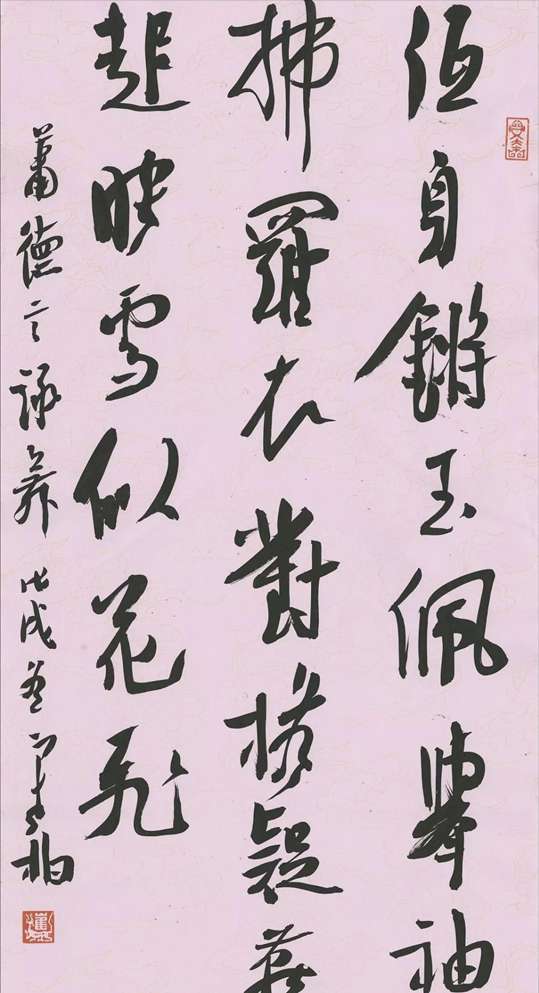 低身鏘玉佩舉袖
拂羅衣對檐疑燕
起映雪似花飛
蕭德言詠舞 戊戌